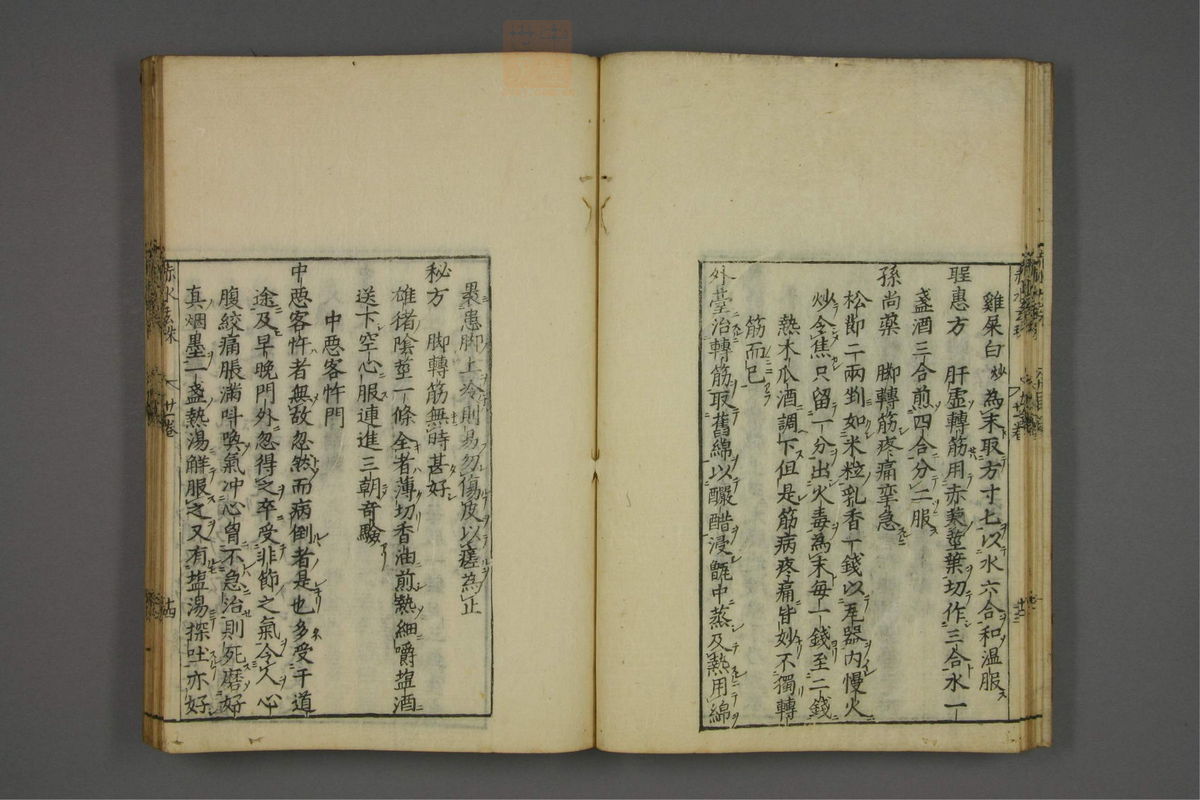 雞屎白炒為末取方寸匕以水六合和温服
聖惠方　肝虛轉筋用赤蓼莖葉切作三合水一
盞酒三合煎四合分二服
孫尚藥　脚轉筋疼痛攣急
松節二兩剉如米粒乳香一錢以磁器内慢火
炒令焦只留一分出火毒為末每一錢至二錢
熱木瓜酒調下但是筋病疼痛皆妙不獨轉
筋而已
外臺治轉筋取舊綿以釅醋浸甑中蒸及熱用綿
裹患脚上冷則易勿傷皮以瘥為止
秘方　脚轉筋無時甚好
雄猪陰莖一條全者薄切香油煎熟細嚼塩酒
送下空心服連進三朝奇驗
中惡客忤門
中惡客忤者無故忽然而病倒者是也多受于道
途及早晚門外忽得之卒受非節之氣令人心
腹絞痛脹滿叫喚氣冲心胸不急治則死磨好
真烟墨一盞熱湯觧服之又有塩湯探吐亦好
赤水玄珠
廿卷
十四